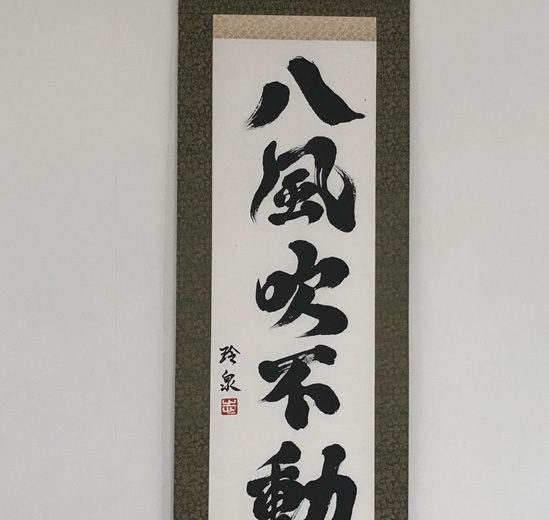 八風吹不動
玲泉